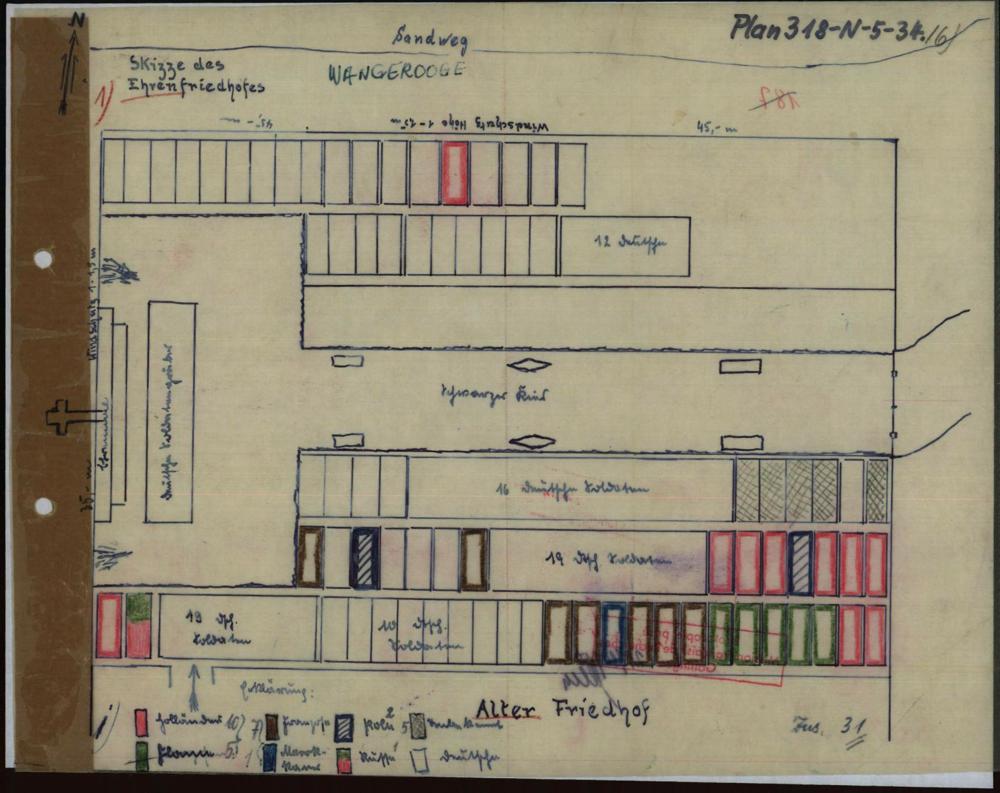 N
Sandweg
Plan 318-N-5-34/6
Skizze des
Ehrenfriedhofes
WANGEROOGE
1)
187
45,- m
Windschutz Höhe 1-1,5 m
45,- m
12 Deutsche
Windschutz 1-1,5 m
Deutsche Soldatengräber
Schwarzer Kies
35,- m
16 deutsche Soldaten
19 dtsch. Soldaten
19 dtsch.
Soldaten
10 dtsch.
Soldaten
Erklärung:
Alter Friedhof
Holländer 10
7 Franzose
Polen 2
5 Unbekannt
Flamen 5
1 Marok-
kaner
Russe 1
Deutsche
Ins. 31